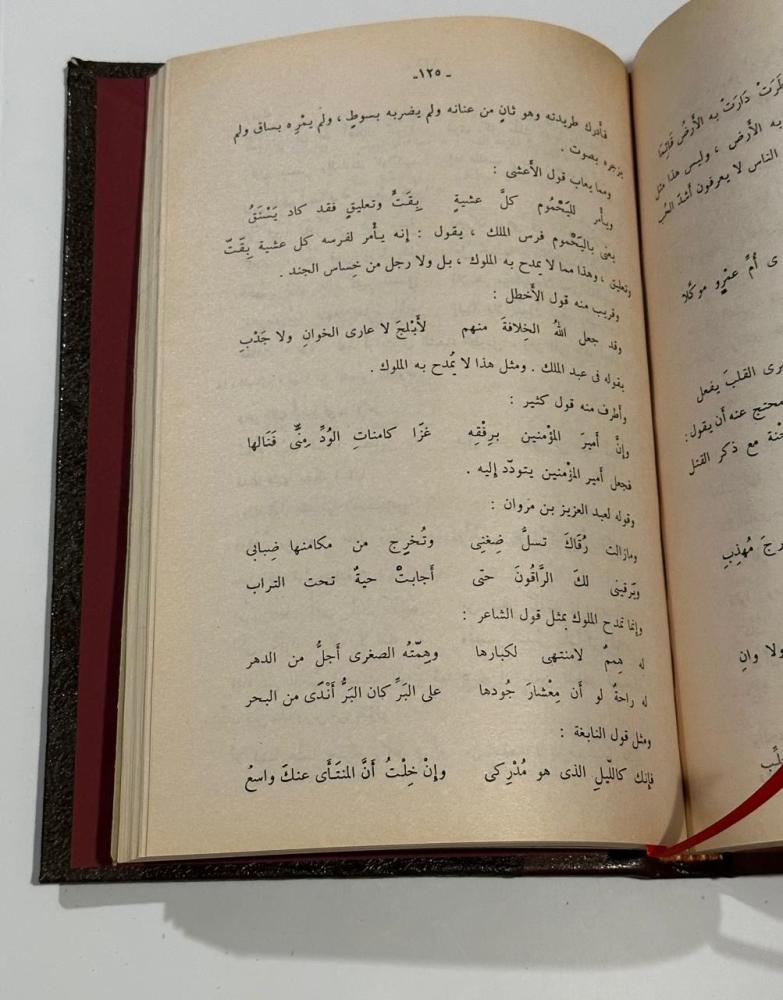 - ١٢٥ -
فأدرك طريدته وهو ثانٍ من عنانه ولم يضربه بسوطٍ ، ولم يمْرِه بساق ولم
يزجره بصوت .
ومما يعاب قول الأعشى :
ويأمر لليَحْمُوم كلَّ عشيةٍ بِقَتٍّ وتعليقٍ فقد كاد يَسْنَقُ
يعنى باليَحْمُوم فرس الملك ، يقول : إنه يأمر لفرسه كل عشية بِقَتّ
وتعليق ، وهذا مما لا يمدح به الملوك ، بل ولا رجل من خِساس الجند .
وقريب منه قول الأخطل :
وقد جعل اللهُ الخِلافةَ منهم لأَبْلجَ لا عارى الخوانِ ولا جَدْبِ
يقوله فى عبد الملك . ومثل هذا لا يُمدح به الملوك .
وأطرف منه قول كثير :
وإنَّ أميرَ المؤمنين برِفْقِه غزَا كامناتِ الوُدِّ مِنِّى فَنَالها
فجعل أمير المؤمنين يتودّد إليه .
وقوله لعبد العزيز بن مَروان :
ومازالت رُقَاكَ تسلُّ ضِغنِى وتُخرِج من مكامنها ضِبابى
ويَرقينى لكَ الرَّاقُونَ حتى أجابتْ حيةٌ تحت التراب
وإنما تمدح الملوك بمثل قول الشاعر :
له هِممٌ لامنتهى لكبارها وهِمّتُه الصغرى أَجلُّ من الدهر
له راحةٌ لو أن مِعْشارَ جُودها على البَرِّ كان البَرُّ أَنْدَى من البحر
ومثل قول النابغة :
فإنك كاللّيلِ الذى هو مُدْرِكى وإنْ خِلْتُ أنَّ المنتأَى عنكَ واسعُ
دَارَتْ به الأرضُ قَائِمًا
به الأرض ، وليس هذا مثل
الناس لا يعرفون أشدّ الحُبِ
أُمّ عمْرٍو موكلا
القلبَ يفعل
محتج عنه أن يقول :
مع ذكر القتل
مُهذِبِ
ولا وانِ